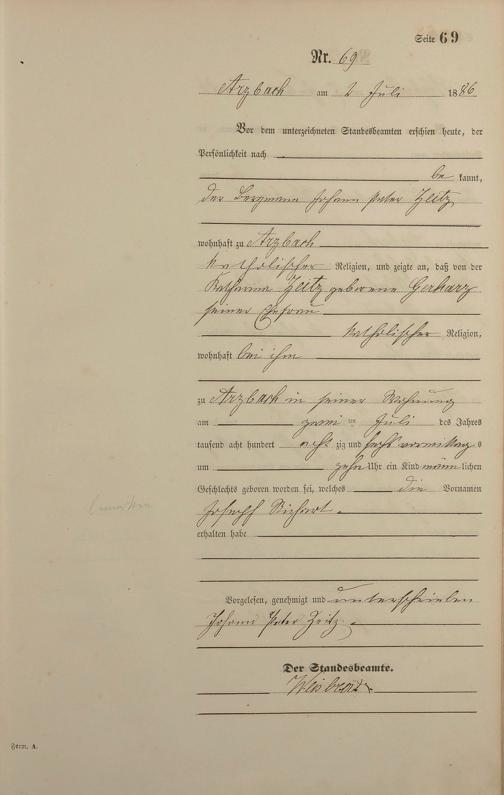 Seite 69
Nr. 69
Arzbach am 2 Juli 1886
Vor dem unterzeichneten Standesbeamten erschien heute, der
Persönlichkeit nach
be kannt,
der Bergmann Johann Peter Zeitz
wohnhaft zu Arzbach
katholischer Religion, und zeigte an, daß von der
Katharina Zeitz geborene Gerharz
seiner Ehefrau
katholischer Religion,
wohnhaft bei ihm
zu Arzbach in seiner Wohnung
am zwei ten Juli des Jahres
tausend acht hundert acht zig und sechs vormittag s
um zehn Uhr ein Kind männ lichen
Geschlechts geboren worden sei, welches die Vornamen
Joseph
erhalten habe
Vorgelesen, genehmigt und unterschrieben
Johann Peter Zeitz
Der Standesbeamte.
Form. A.